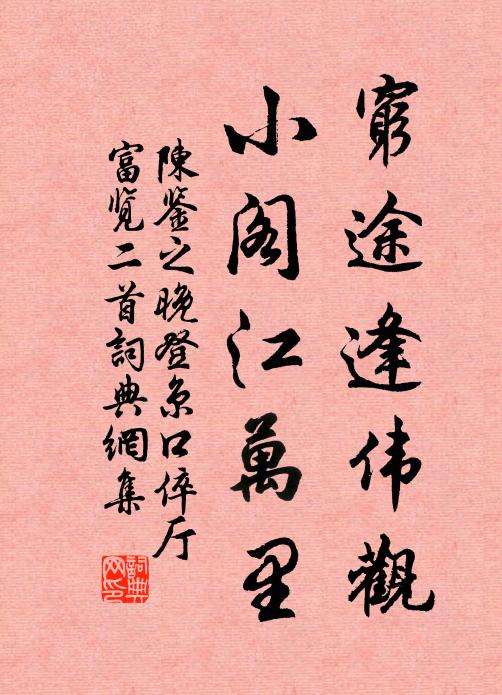 窮途逢伟觀
小阁江萬里
陳鉴之晚登京口倅厅
富览二首詞典網集
詞典
网印